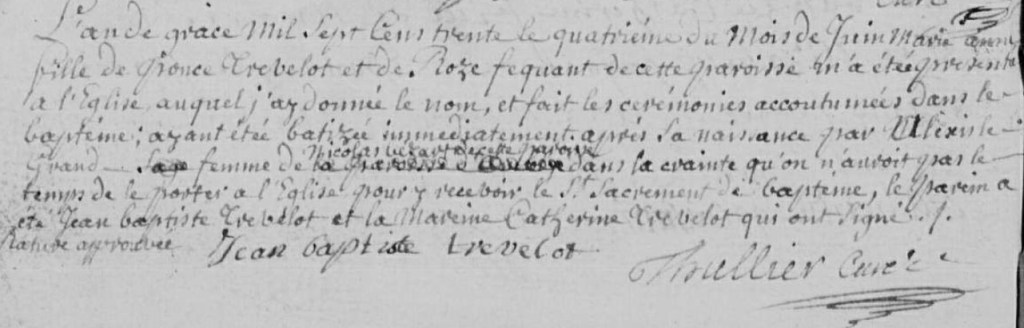 Curé
L'an de grace Mil Sept Cens trente le quatrième du Mois de Juin Marie anne
fille de Ponce Trevelot et de Roze fequant de cette paroisse m'a étée presenté
a l'Eglise, auquel j'ay donnée le nom, et fait les cerémonies accoutumées dans le
baptéme; ayant étée batizée immediatement aprés sa naissance par Alexis le
Nicolas de cette paroisse
Grand sage femme de la paroisse dans la crainte qu'on n'auroit pas le
temps de le porter a l'Eglise pour y recevoir le St Sacrement de baptéme, le parein a
eté Jean baptiste Trevelot et la Mareine Catherine Trevelot qui ont signé ./.
Rature approuvée Jean baptiste trevelot
Thullier Curé